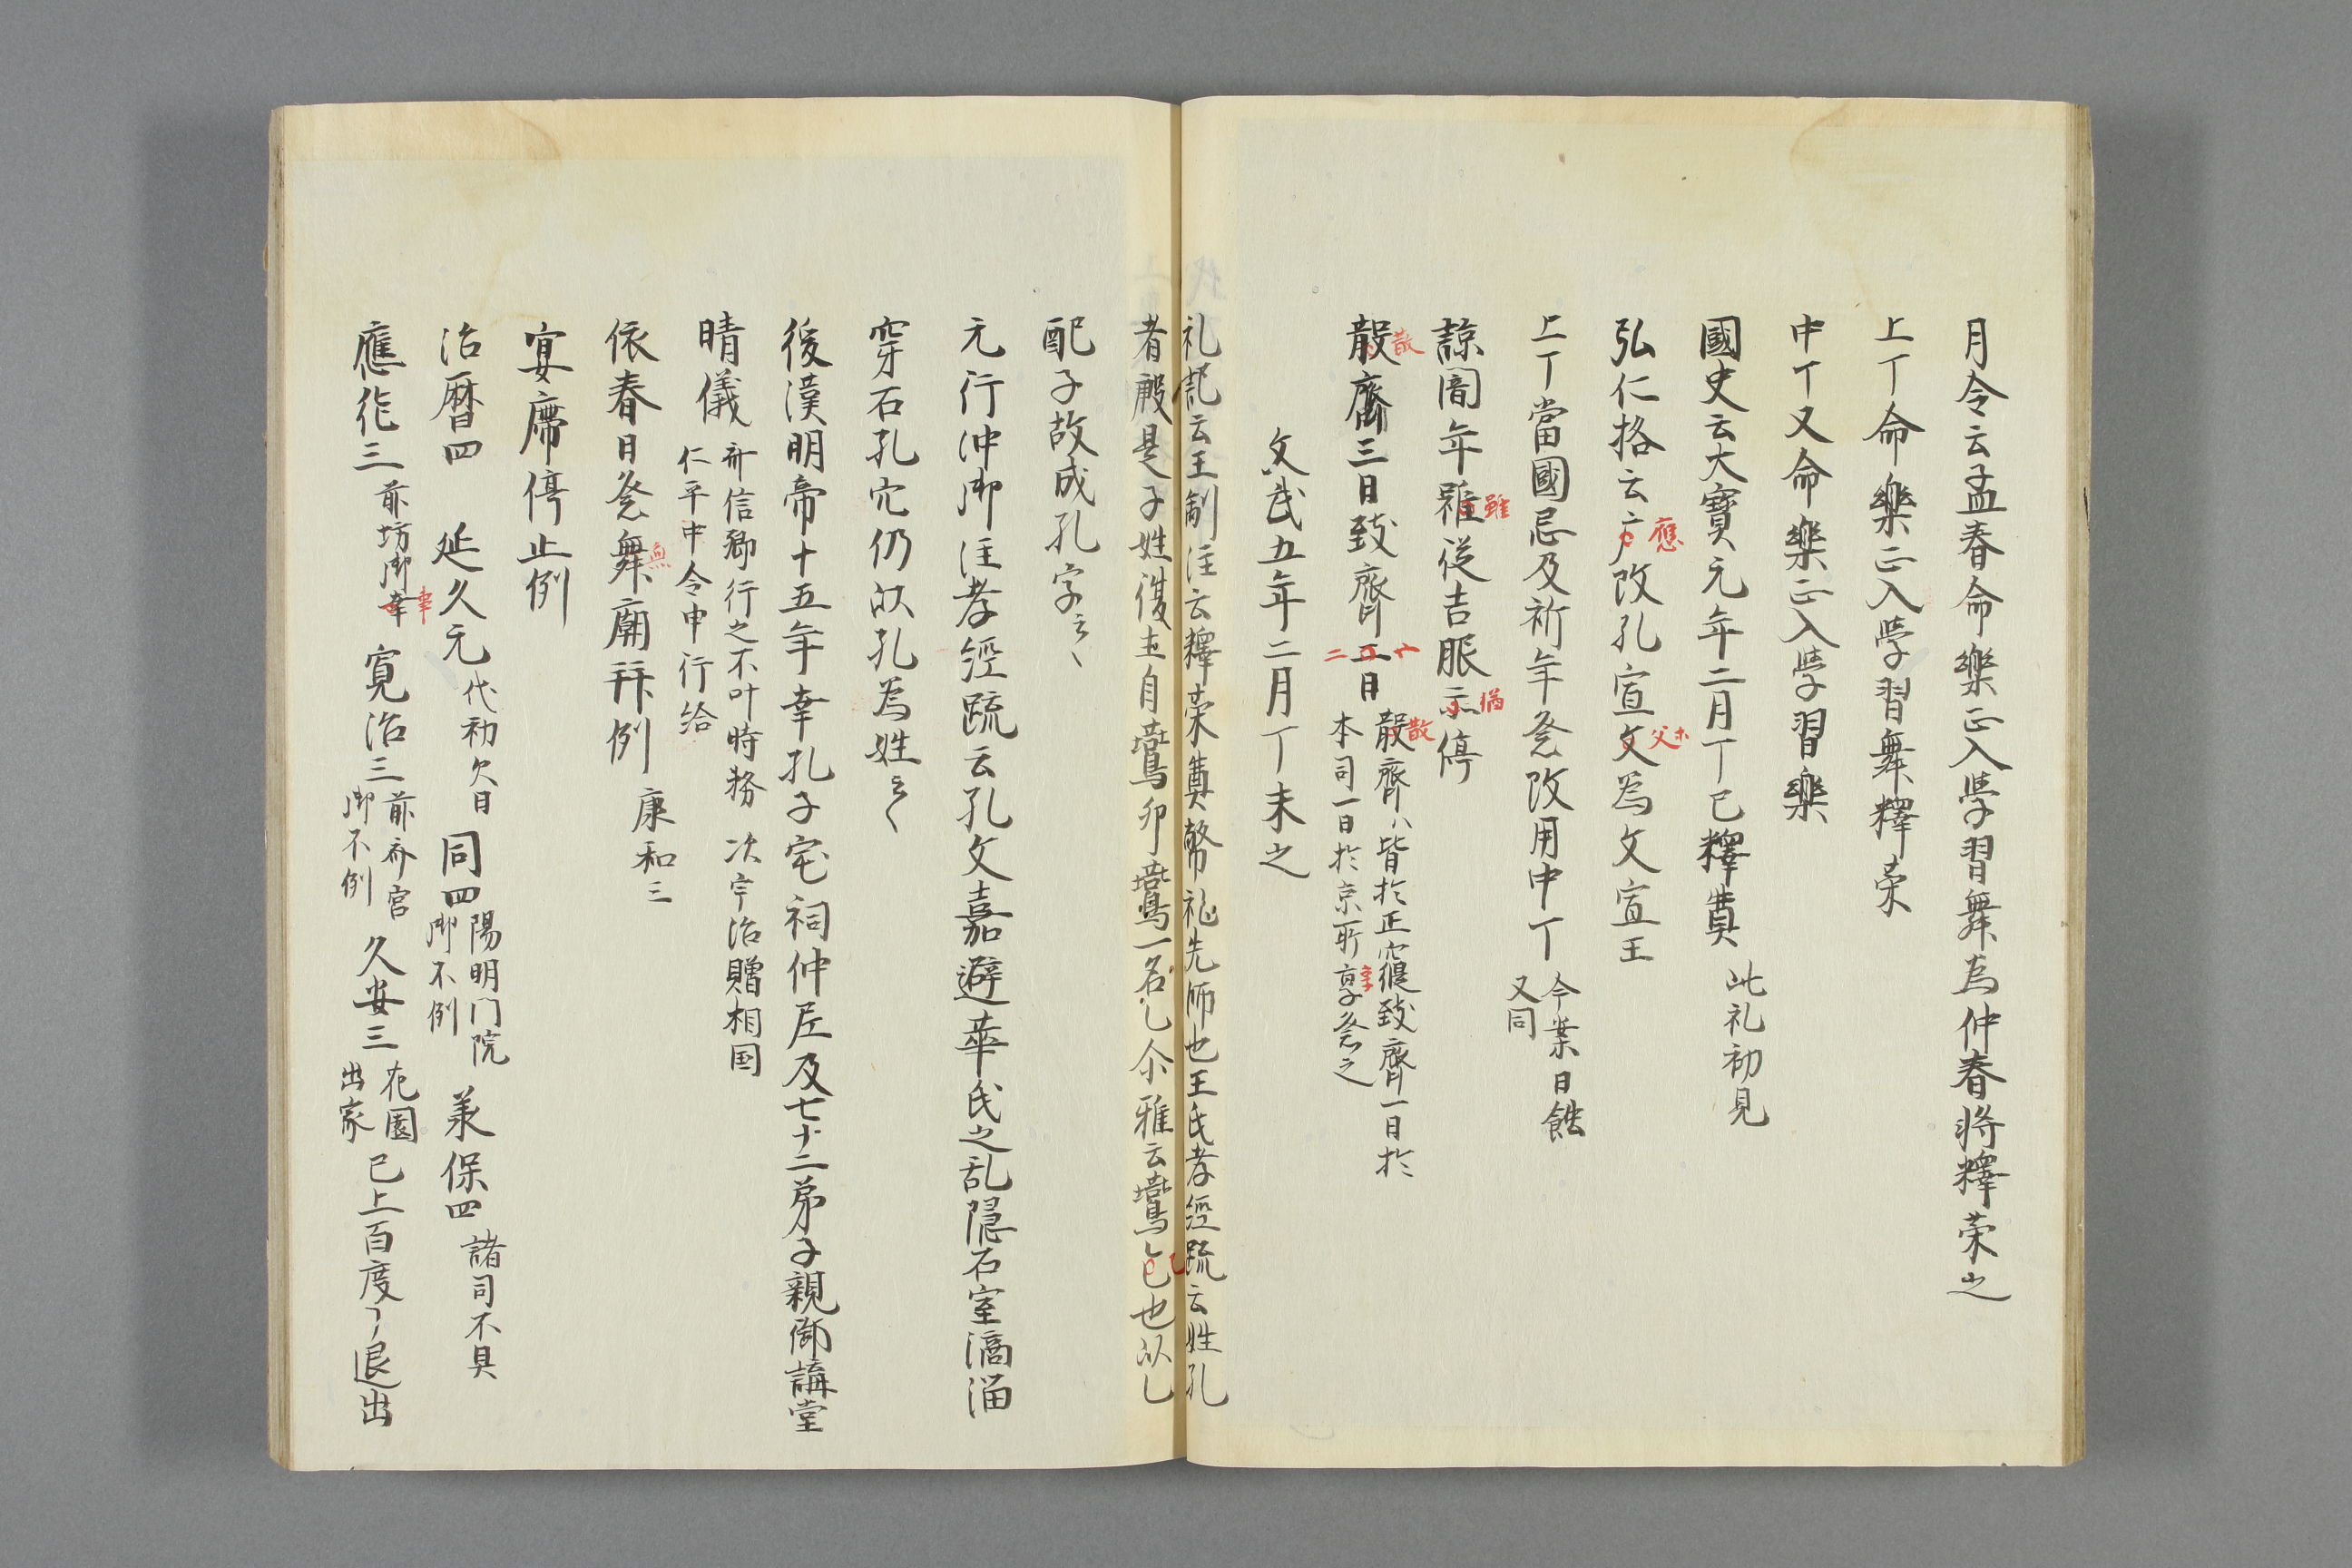 月令云孟春命樂正入学習舞為仲春将釋菜之
上丁命樂正入学習舞釋菜
中丁又命樂正入学習樂
國史云大寳元年二月丁巳釋奠 此礼初見
弘仁格云應改孔宣父為文宣王
上丁當國忌及祈年祭改用中丁 今案日蝕
又同
諒闇年雖從吉服猶停
散齋三日致齊二日 散齊八皆於正寝致齊一日於
本司一日於京所享祭之
文武五年二月丁未之
礼記云王制注云釋菜奠幣礼先師也王氏孝經疏云姓孔
者殷是子姓後主自鷰卵鷰一名乙尓雅云鷰乙也以乚
配子故成孔字云々
元行沖御注孝經疏云孔文嘉避華氏之乱隠石室滴溜
穿石孔穴仍以孔為姓云々
後漢明帝十五年幸孔子宅祠仲尼及七十二弟子親御講堂
晴儀 斉信卿行之不叶時務 次宇治贈相国
仁平中令申行给
依春日祭無廟拜例 康和三
宴席停止例
治暦四 延久元 代初欠日 同四 陽明门院
御不例 承保四 諸司不具
應德三 前坊御事 寛治三 前斎宮
御不例 久安三 花園
出家 已上百度了退出